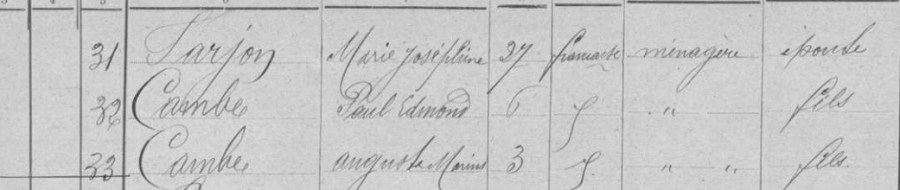 31 Sarjon Marie Joséphine 27 française ménagère épouse
32 Cambe Paul Edmond 6 " " fils
33 Cambe auguste Marius 3 " " " fils